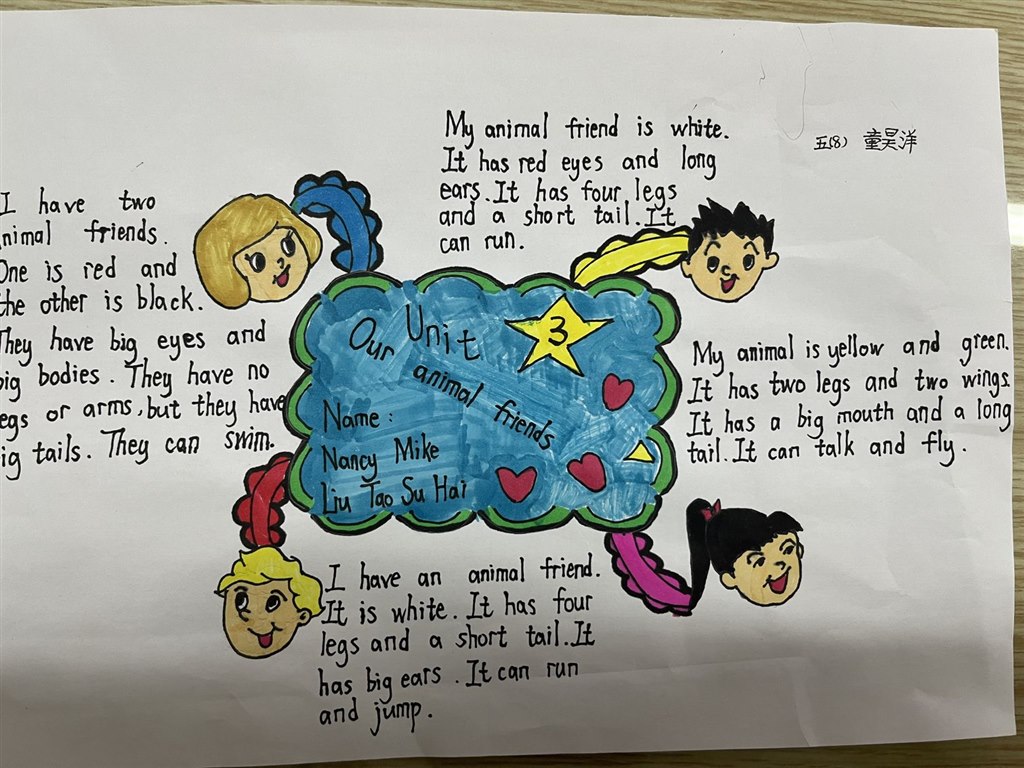 五(8) 童昊洋
My animal friend is white.
It has red eyes and long
ears. It has four legs
and a short tail. It
can run.
I have two
nimal friends.
One is red and
the other is black.
They have big eyes and
big bodies. They have no
egs or arms, but they have
ig tails. They can swim.
Our Unit 3
animal friends
Name:
Nancy Mike
Liu Tao Su Hai
My animal is yellow and green.
It has two legs and two wings.
It has a big mouth and a long
tail. It can talk and fly.
I have an animal friend.
It is white. It has four
legs and a short tail. It
has big ears. It can run
and jump.